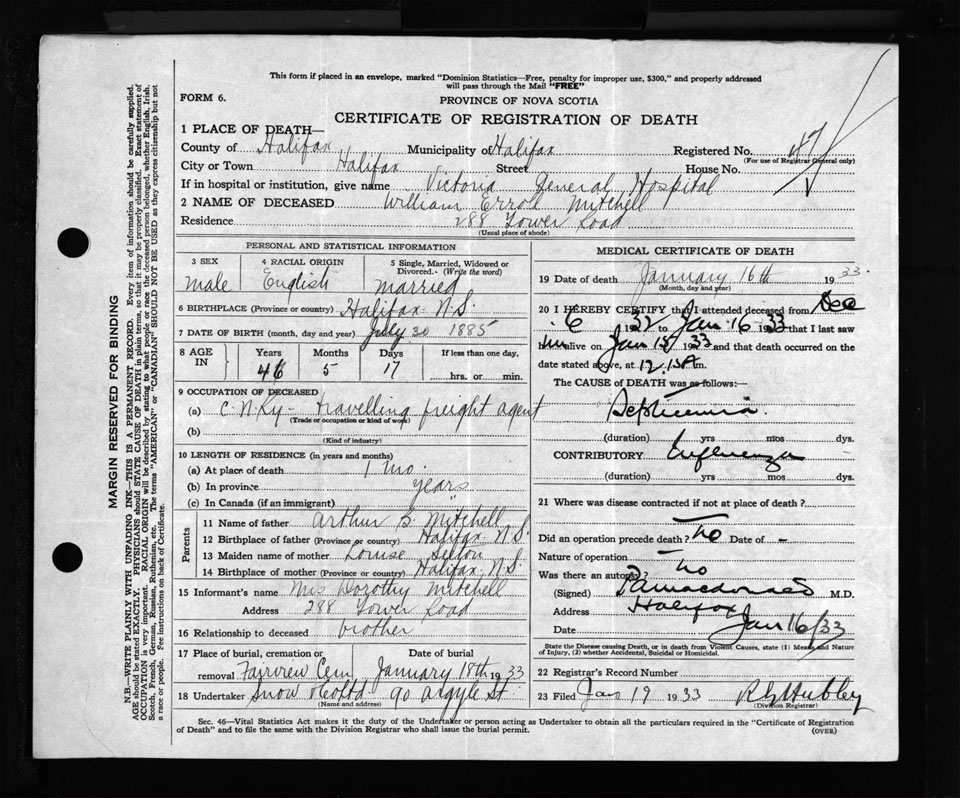 This form if placed in an envelope, marked "Dominion Statistics—Free, penalty for improper use, $300," and properly addressed
will pass through the Mail "FREE"
FORM 6.
PROVINCE OF NOVA SCOTIA
CERTIFICATE OF REGISTRATION OF DEATH
1 PLACE OF DEATH—
County of Halifax Municipality of Halifax Registered No. 47
(For use of Registrar General only)
City or Town Halifax Street House No.
If in hospital or institution, give name Victoria General Hospital
2 NAME OF DECEASED William Errol Mitchell
Residence 288 Tower Road
(Usual place of abode)
PERSONAL AND STATISTICAL INFORMATION
3 SEX 4 RACIAL ORIGIN 5 Single, Married, Widowed or
Divorced.- (Write the word)
Male English Married
6 BIRTHPLACE (Province or country) Halifax N.S.
7 DATE OF BIRTH (month, day and year) July 30 1885
8 AGE IN Years Months Days If less than one day,
46 5 17 hrs. or min.
9 OCCUPATION OF DECEASED
(a) C.N.Ry - travelling freight agent
(Trade or occupation or kind of work)
(b)
(Kind of industry)
10 LENGTH OF RESIDENCE (in years and months)
(a) At place of death 1 mo.
(b) In province years
(c) In Canada (if an immigrant) "
Parents
11 Name of father Arthur S. Mitchell
12 Birthplace of father (Province or country) Halifax N.S.
13 Maiden name of mother Louise
14 Birthplace of mother (Province or country) Halifax N.S.
15 Informant's name Mrs Dorothy Mitchell
Address 288 Tower Road
16 Relationship to deceased brother
17 Place of burial, cremation or Date of burial
removal Fairview Cem January 18th 1933
18 Undertaker Snow & Co Ltd 90 Argyle St.
(Name and address)
MEDICAL CERTIFICATE OF DEATH
19 Date of death January 16th 1933.
(Month, day and year)
20 I HEREBY CERTIFY that I attended deceased from Dec
6 1932 to Jan 16 1933 that I last saw
him alive on Jan 15 1933 and that death occurred on the
date stated above, at 12.15A m.
The CAUSE of DEATH was as follows:—
Septicemia.
(duration) yrs mos dys.
CONTRIBUTORY Influenza
(duration) yrs mos dys.
21 Where was disease contracted if not at place of death?
Did an operation precede death? no Date of -
Nature of operation —
Was there an autopsy? no
(Signed) M.D.
Address Halifax
Date Jan 16/33
State the Disease causing Death, or in death from Violent Causes, state (1) Means and Nature
of Injury, (2) whether Accidental, Suicidal or Homicidal.
22 Registrar's Record Number
23 Filed Jan 19 1933 Hubley
(Division Registrar)
Sec. 46—Vital Statistics Act makes it the duty of the Undertaker or person acting as Undertaker to obtain all the particulars required in the "Certificate of Registration
of Death" and to file the same with the Division Registrar who shall issue the burial permit.
(OVER)
MARGIN RESERVED FOR BINDING
N.B.—WRITE PLAINLY WITH UNFADING INK—THIS IS A PERMANENT RECORD. Every item of information should be carefully supplied.
AGE should be stated EXACTLY. PHYSICIANS should STATE CAUSE OF DEATH in plain terms, so that it may be properly classified. Exact statement of
OCCUPATION is very important. RACIAL ORIGIN will be described by stating to what people or race the deceased person belonged, whether English, Irish,
Scotch, French, German, Russian, Ruthenian, etc. The terms "AMERICAN" or "CANADIAN" SHOULD NOT BE USED as they express citizenship but not
a race or people. Fee instructions on back of Certificate.